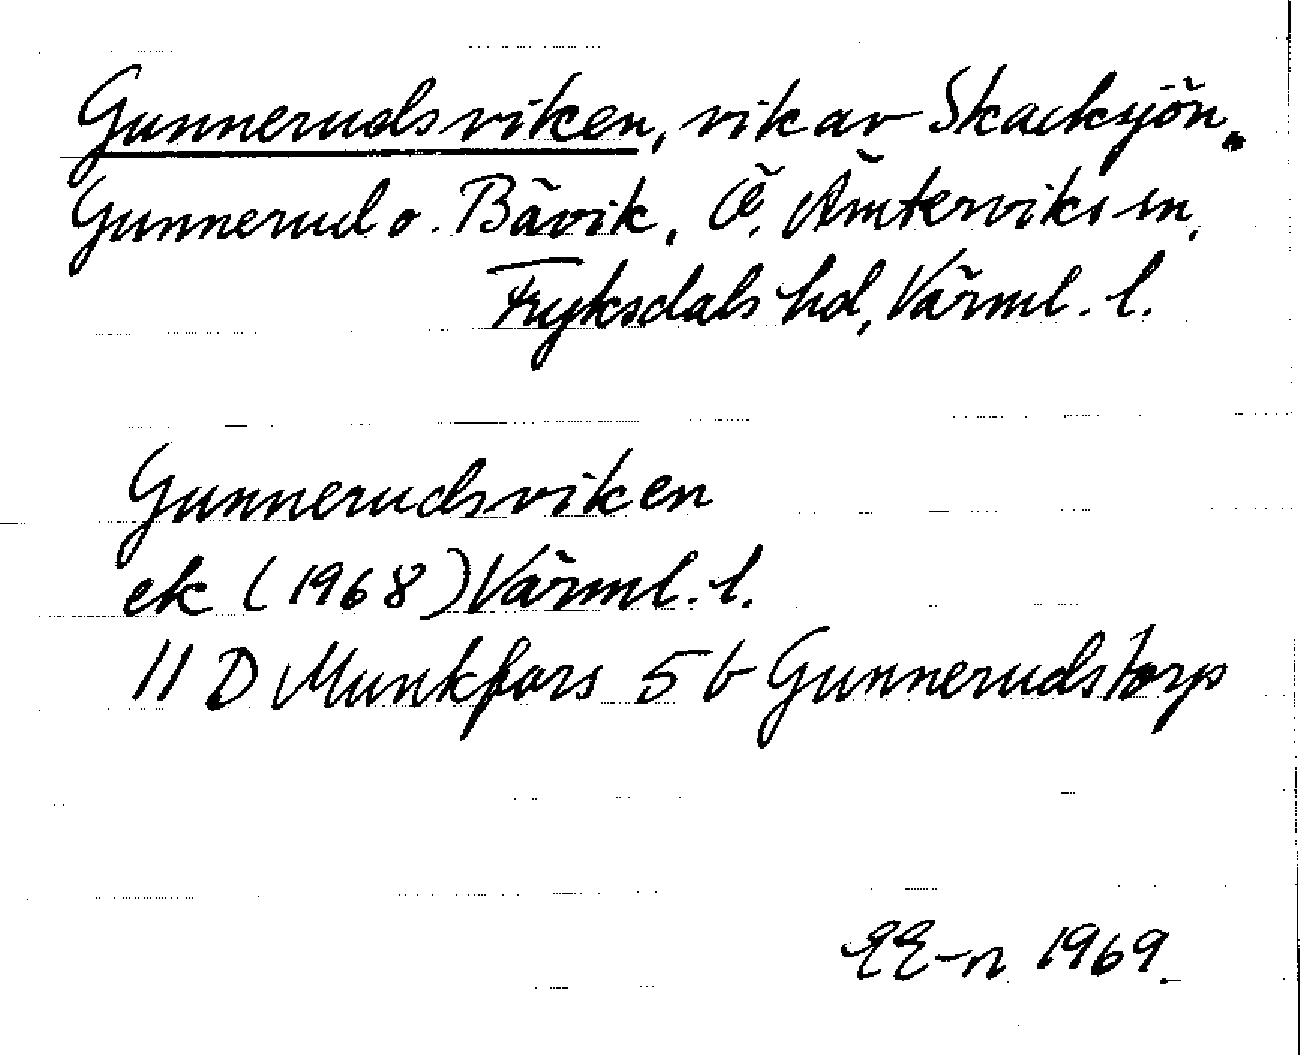 Gunnerudsviken, vik av Skacksjön.
Gunnerud o. Bävik, Ö. Ämterviks sn,
Fryksdals hd, Värml. l.
Gunnerudsviken
ek (1968) Värml. l.
11 D Munkfors 5 b Gunnerudstorp
EE-n 1969.